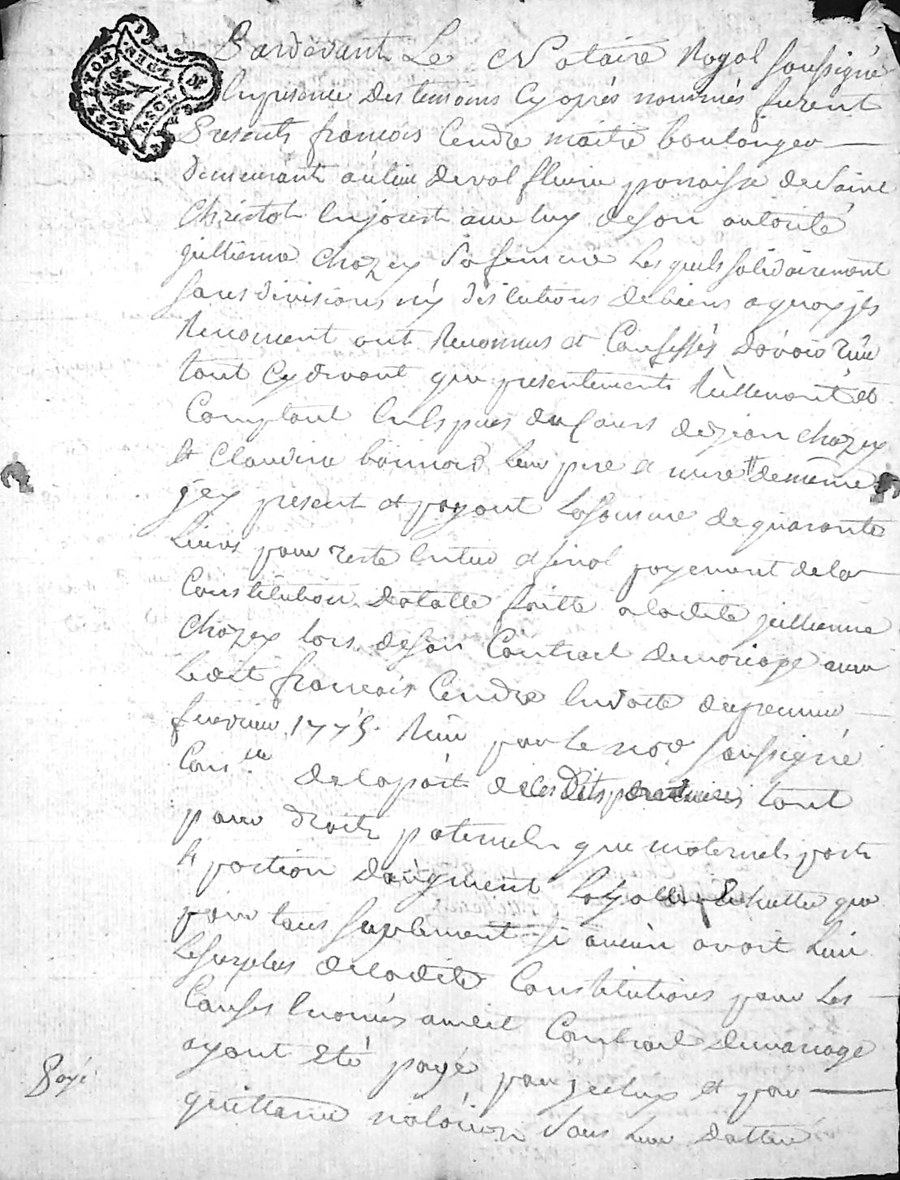 Pardevant Le Notaire Royal soussigné
En presence des temoins Cy aprés nommés furent
Presents francois Cendre maitre boulanger
demeurant au lieu deval fleurie parroisse de Saint
Christoh En jorest avec luy de son autorité
jullienne Chozey Sa femme Lesquels solidairement
sans divisions ny discutions de biens a quoy jls
Renoncent ont Reconnus et Confessés d'avoir Reçu
tant Cy devant que presentements Reellement et
Comptant En Espèces du Cours de jean Chozey
Et Claudine bonnard Leur pere et mere
jcy présent et payant La somme de quarante
Livres pour reste Entier et final payement dela
Constitution dotalle faitte aladite jullienne
Chozey lors de son Contract de mariage avec
Ledit francois Cendre En datte du premier
fevrier 1775. Reçu par le no.re soussigné
Con.er de la part de ces Dits tant
pour droits paternels que maternels part
Et portion d'augment Echutte que
pour tous suplement si aucun avoit Lieu
Le surplus deladite Constitutions pour Les
Causes Enoncés audit Contract de mariage
ayant Eté payé par jceluy et par
quittance notariée Sous Leur datte
Payé